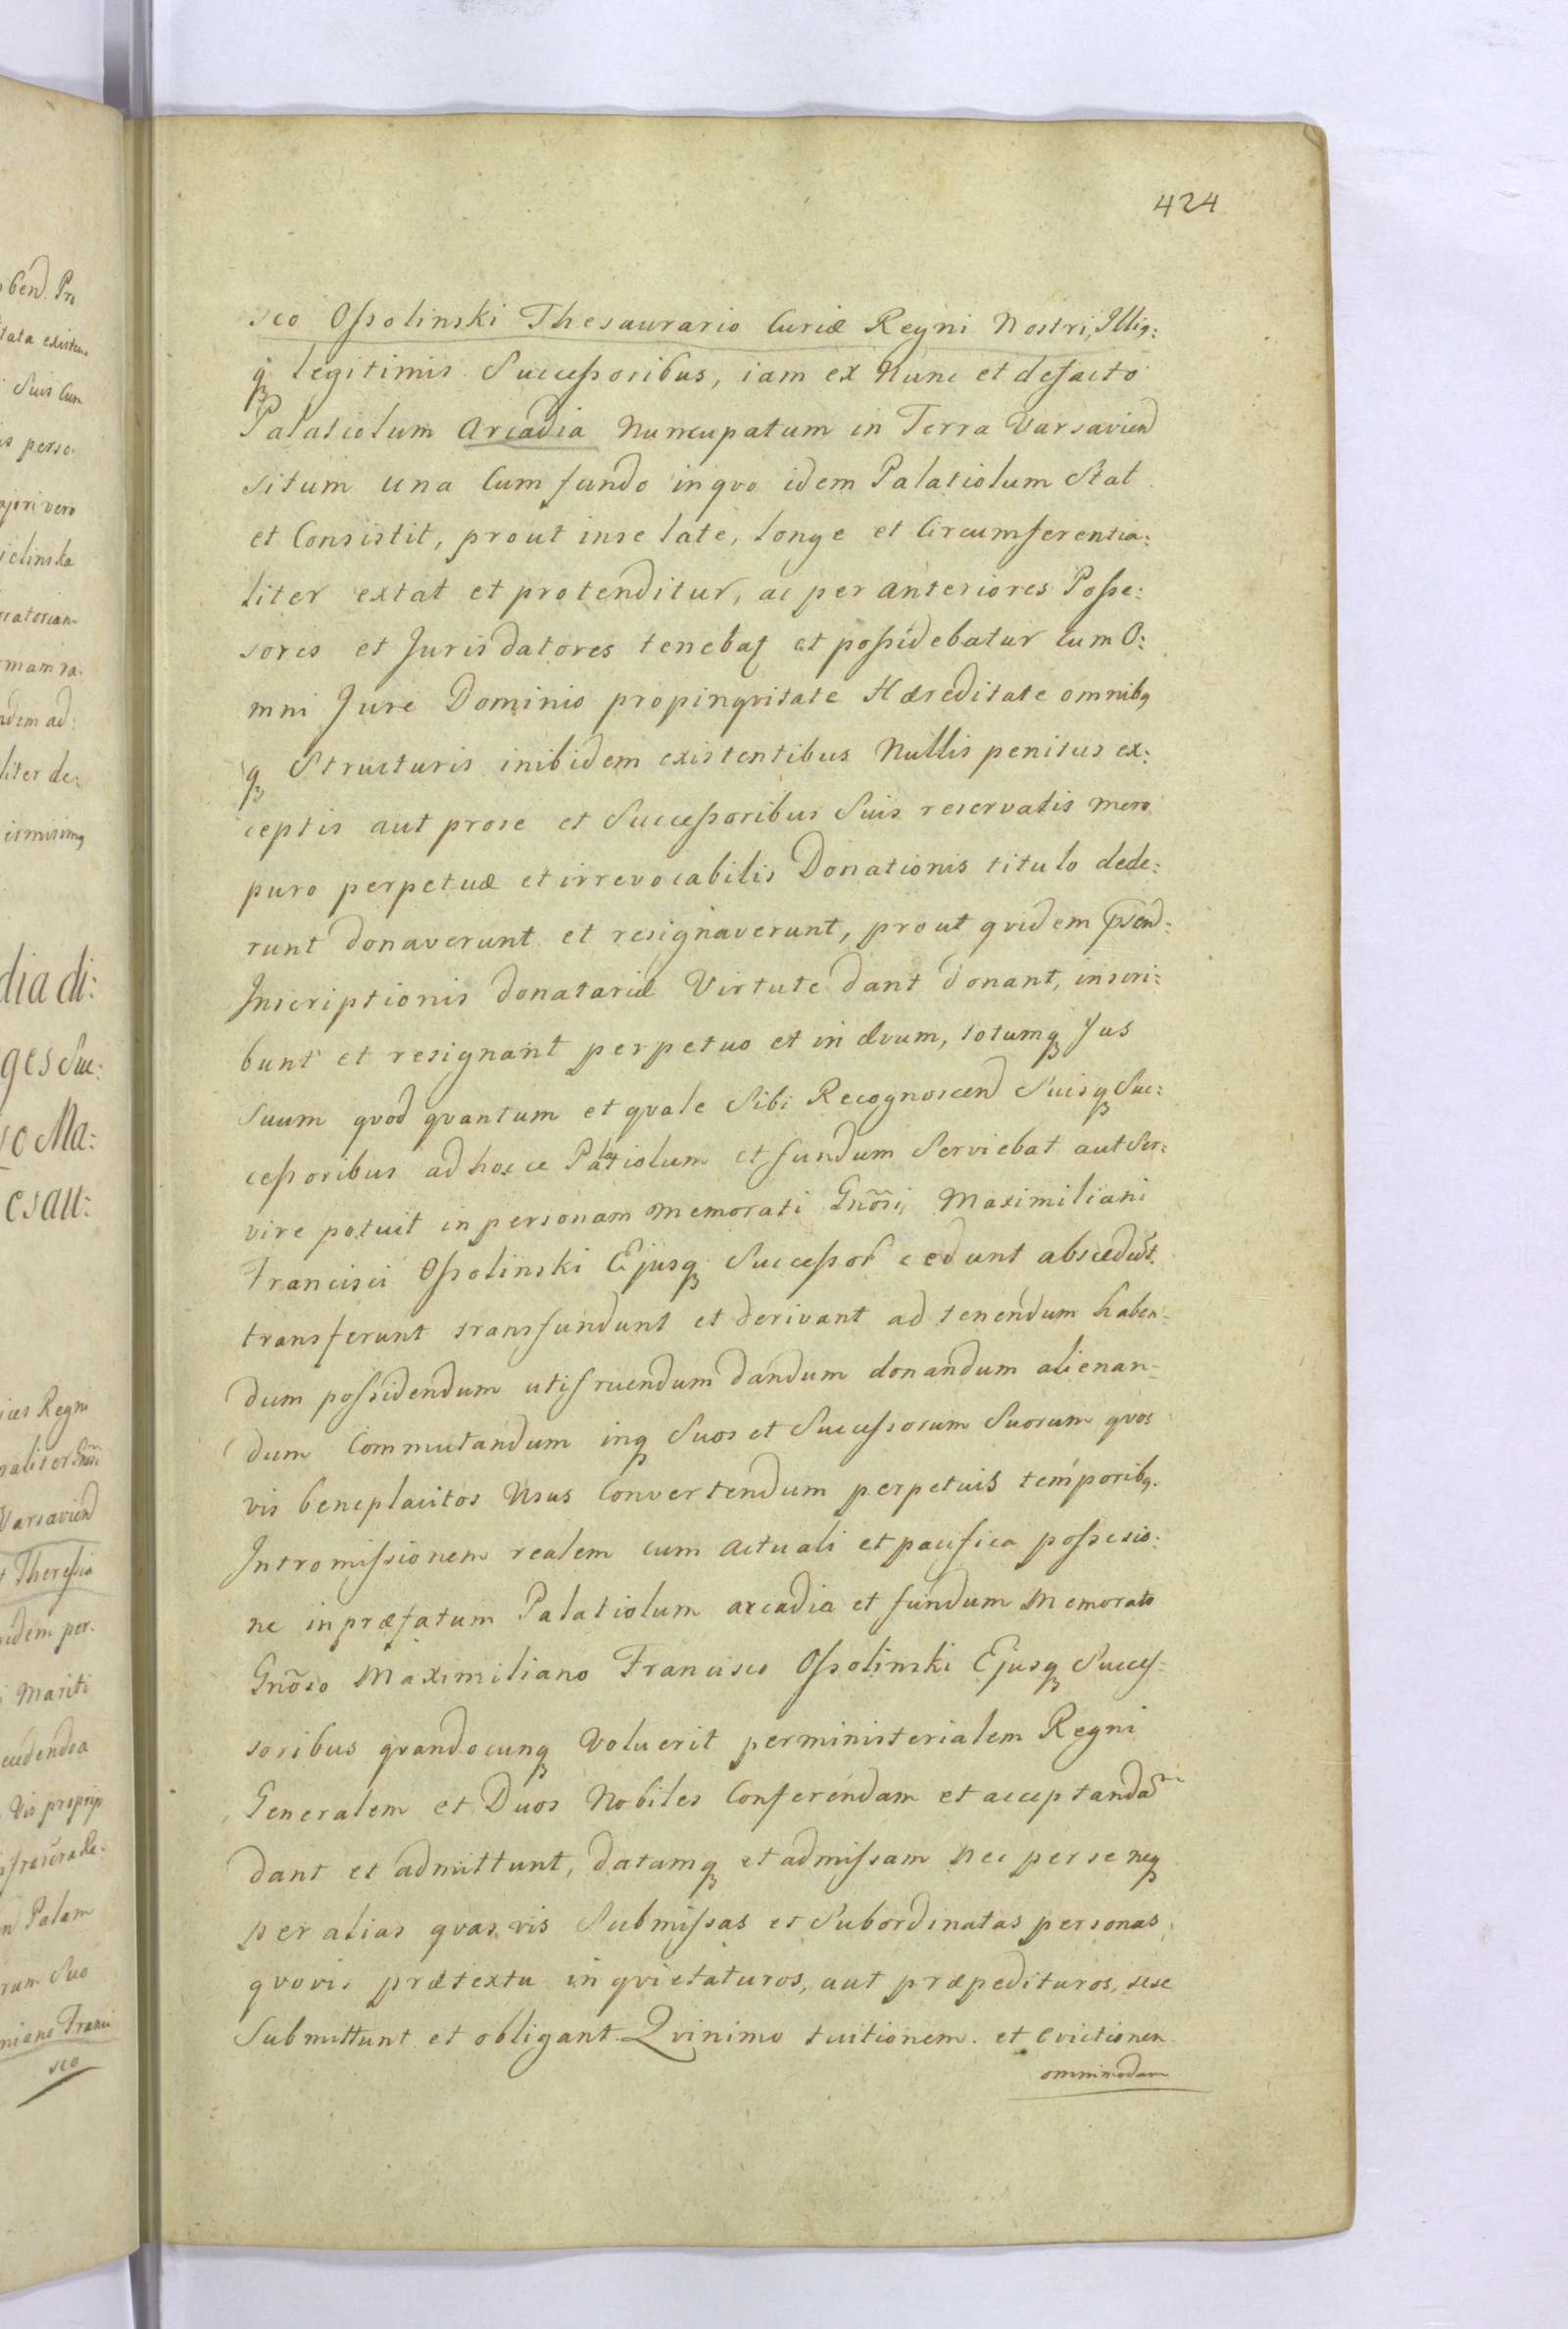 424
sco Ossolinski Thesaurario Curiæ Regni Nostri, Illig:
q legitimis Successoribus, iam ex Nunc et defacto
Palatiolum Arcadia Nuncupatum in Terra Varsavien
situm una Cum fundo inqvo idem Palatiolum Stat
et Consistit, prout inse late, longe et Circumferentia:
liter extat et protenditur, ac per anteriores Posse:
sores et Juris datores tenebat et possidebatur cum O:
mni Jure Dominio propinqvitate Hæreditate omnibq
q Structuris inibidem existentibus Nullis penitus ex:
ceptis aut prose et Successoribus Suis reservatis mero
puro perpetuæ et irrevocabilis Donationis titulo dede:
runt donaverunt et resignaverunt, prout qvidem pñend:
Inscriptionis donatariæ Virtute dant donant, inscri:
bunt et resignant perpetuo et in ævum, totumq Jus
suum qvod qvantum et qvale Sibi Recognoscend Suisq Suc:
cessoribus ad hocce Palatiolum et fundum Serviebat aut Ser:
vire potuit in personam memorati Gnõsi Maximiliani
Francisci Ossolinski Ejusq Successor cedunt abscedũt
transferunt transfundunt et derivant ad tenendum haben=
dum possidendum utifruendum dandum donandum alienan=
dum Commutandum inq Suos et Successorum Suorum qvos
vis beneplacitos Usus Convertendum perpetuis temporibq.
Intromissionem realem cum actuali et pacifica possesio:
ne inpræfatum Palatiolum arcadia et fundum Memorato
Gnõso Maximiliano Francisco Ossolinski Ejusq Succes=
soribus qvandocunq Voluerit perministerialem Regni
Generalem et Duos Nobiles Conferendam et acceptandã
dant et admittunt, datamq et admissam Nec per se neq
per alias qvas vis Submissas et Subordinatas personas
qvovis prætextu inqvietaturos, aut præpedituros, sese
Submittunt et obligant. Qvinimo tuitionem et Evictionem
omnimodam
ben Pro
tata existens
Suis Cum
is perso:
jori vero
ielinska
ratoriam
mam ra:
ndem ad:
liter de:
dia di:
ges Suc:
so Ma:
esau:
ias Regni
Varsavien
Theressia
videm per:
Mariti
Vis propriis
Palam
rum Suo
niano Franci
sco